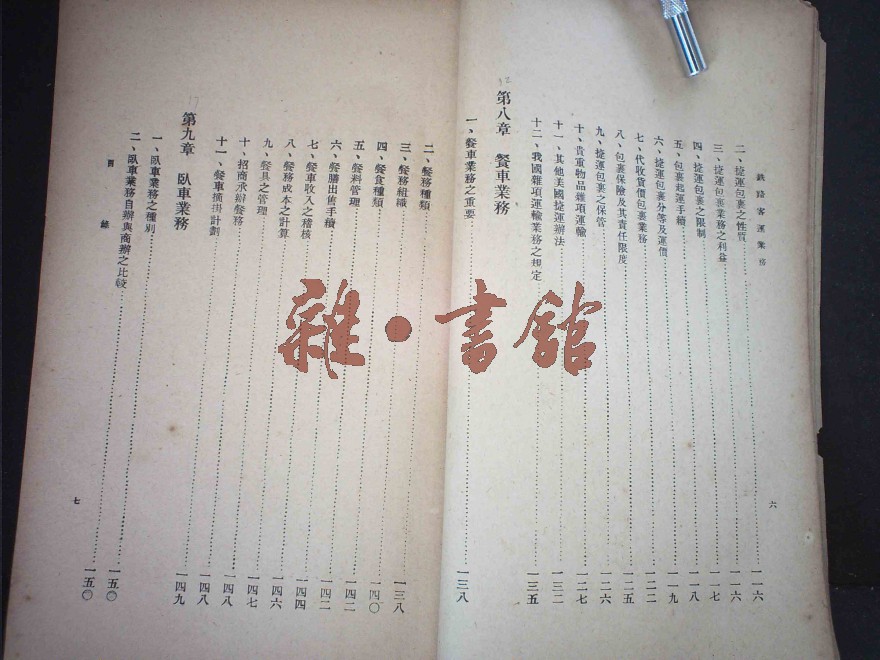 鉄路客運業務
二、捷運包裹之性質 一一六
三、捷運包裹業務之利益 一一六
四、捷運包裹之限制 一一七
五、包裹起運手續 一一八
六、捷運包裹分等及運價 一一九
七、代收貨價包裹業務 一二二
八、包裹保險及其責任限度 一二五
九、捷運包裹之保管 一二六
十、貴重物品雜項運輸 一二七
十一、其他美國捷運辦法 一三二
十二、我國雜項運輸業務之規定 一三五
第八章 餐車業務
一、餐車業務之重要 一三八
六
二、餐務種類 一三八
三、餐務組織
四、餐食種類 一四〇
五、餐料管理 一四二
六、餐膳出售手續 一四二
七、餐車收入之稽核 一四四
八、餐務成本之計算 一四六
九、餐具之管理 一四七
十、招商承辦餐務 一四八
十一、餐車摘掛計劃 一四八
第九章 臥車業務 一四九
一、臥車業務之種別 一五〇
二、臥車業務自辦與商辦之比較 一五〇
目錄
七
雜·書館